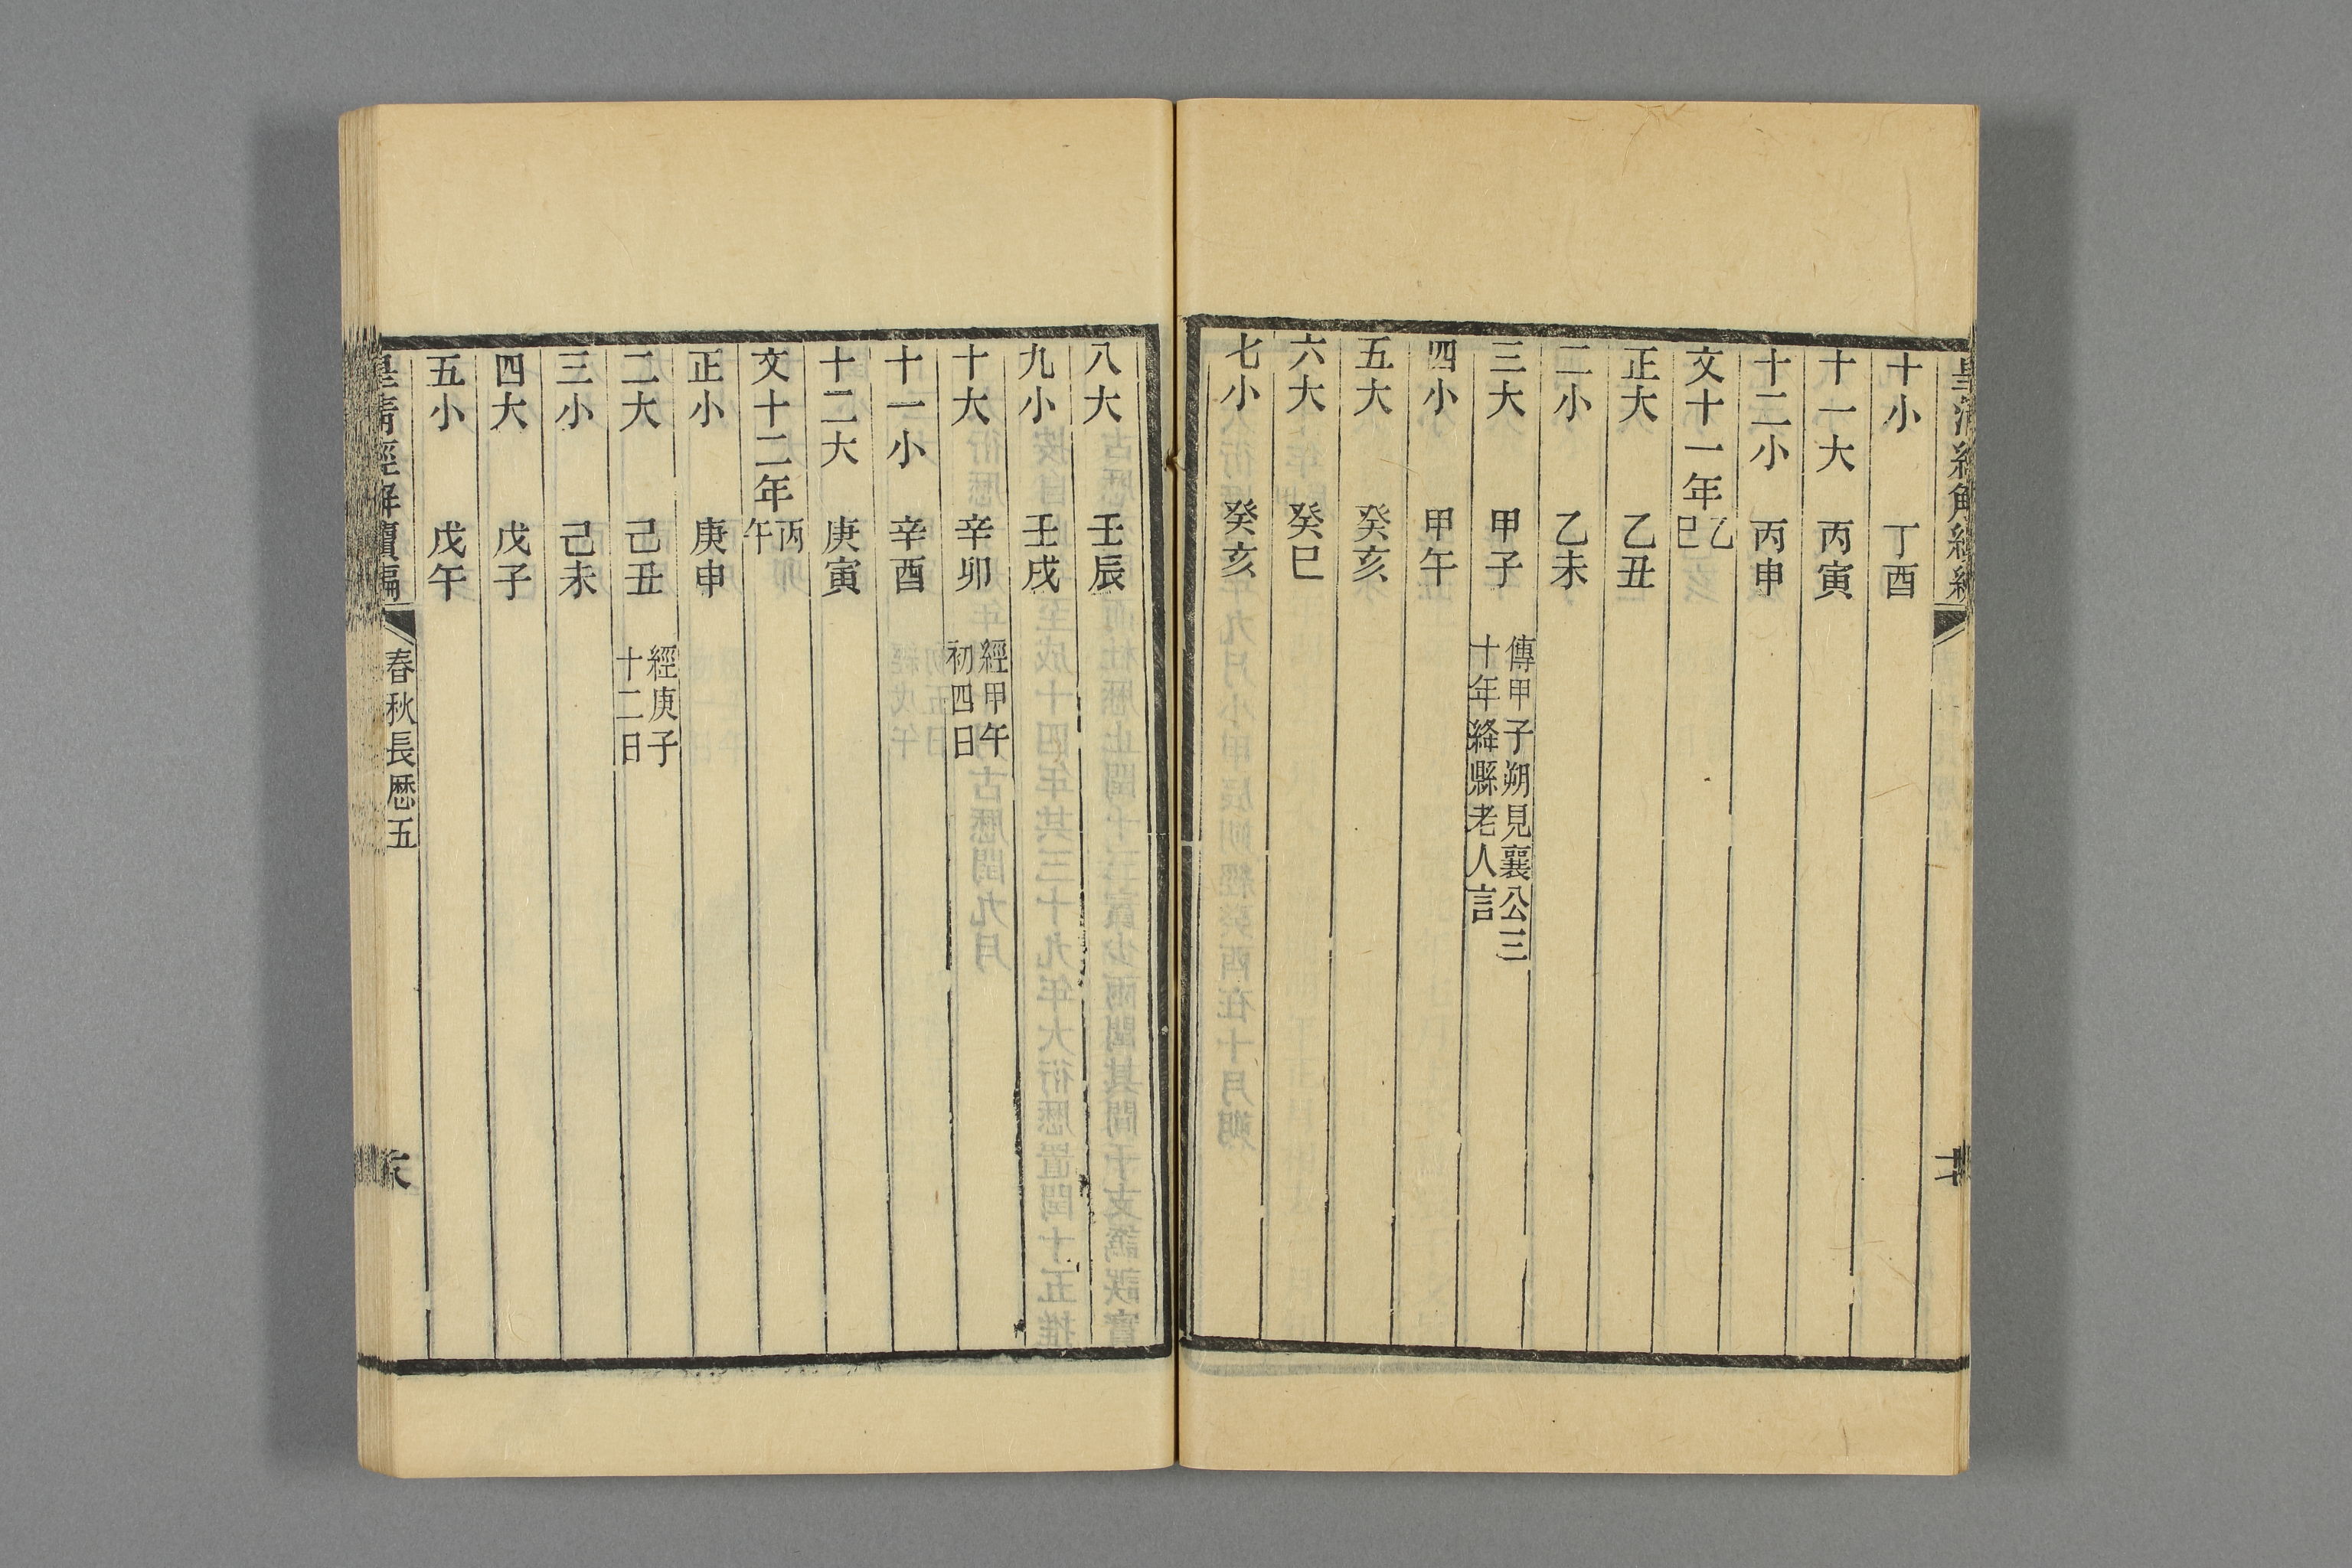 十小 丁酉
十一大 丙寅
十二小 丙申
文十一年 乙巳
正大 乙丑
二小 乙未
三大 甲子 傳甲子朔見襄公三
十年絳縣老人言
四小 甲午
五大 癸亥
六大 癸巳
七小 癸亥
八大 壬辰
九小 壬戌
十大 辛卯 經甲午
初四日
十一小 辛酉
十二大 庚寅
文十二年 丙午
正小 庚申
二大 己丑 經庚子
十二日
三小 己未
四大 戊子
五小 戊午
皇清經解續編 春秋長厯五